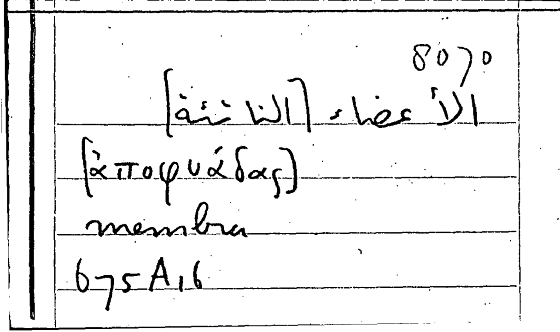 8070
الأعضاء [الناتئة]
[ἀποφυάδας]
membra
675A,6